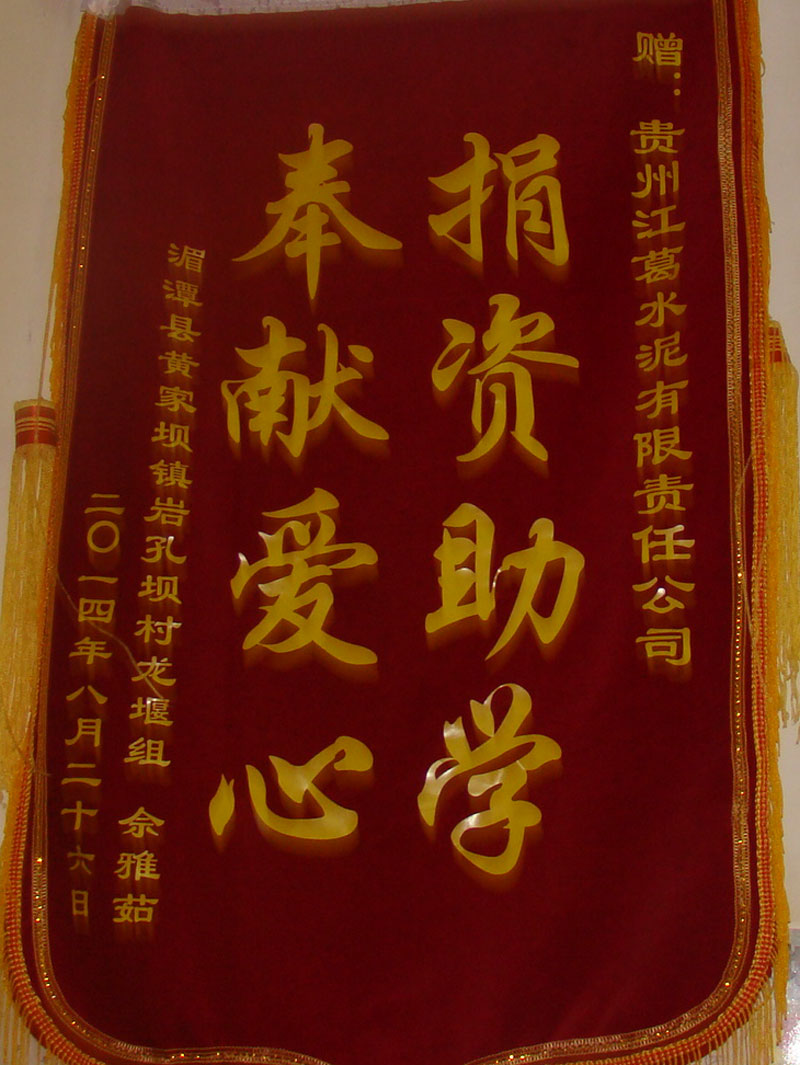 赠：贵州江葛水泥有限责任公司
捐资助学
奉献爱心
湄潭县黄家坝镇岩孔坝村龙堰组 佘雅茹
二〇一四年八月二十六日